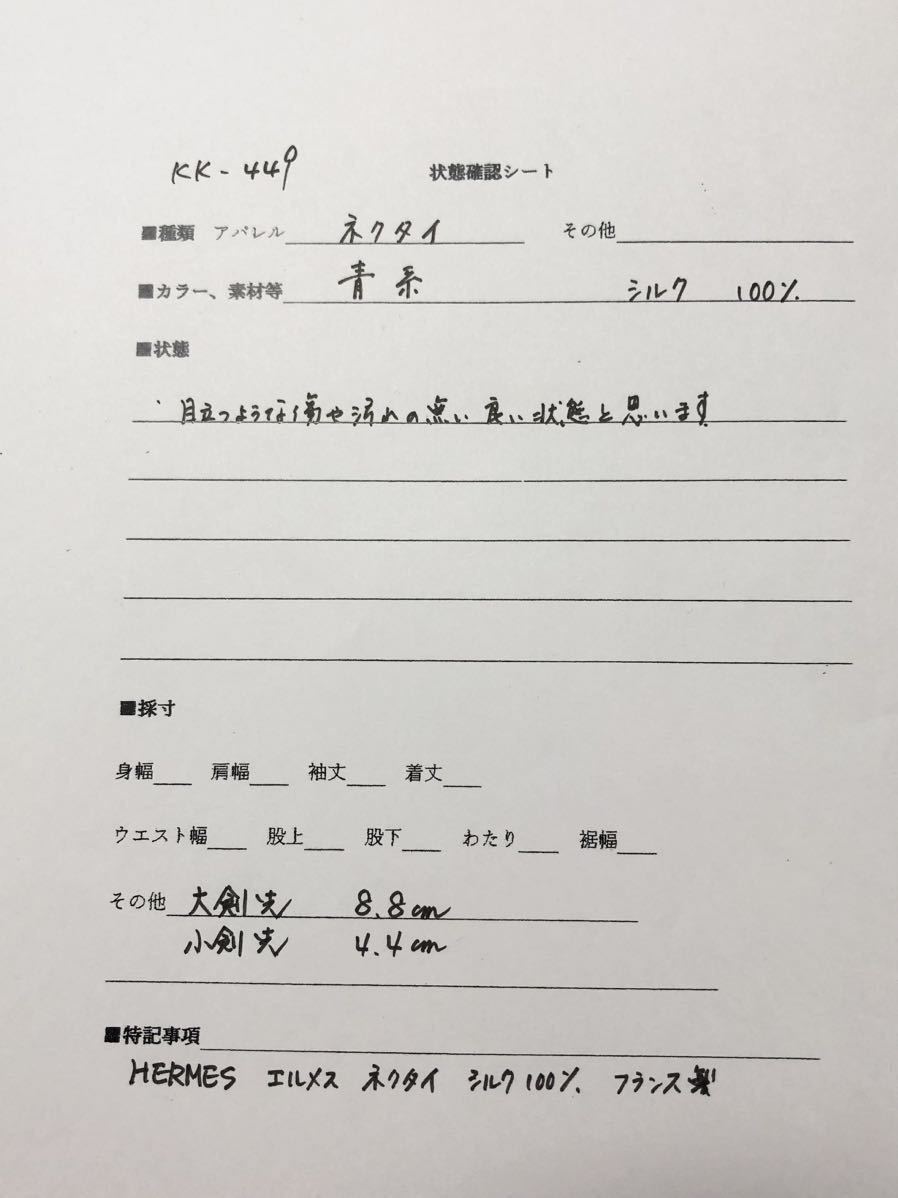 KK-449 状態確認シート
■種類 アパレル ネクタイ その他
■カラー、素材等 青系 シルク 100%
■状態
・目立つような傷や汚れの無い良い状態と思います
■採寸
身幅 肩幅 袖丈 着丈
ウエスト幅 股上 股下 わたり 裾幅
その他 大剣先 8.8cm
小剣先 4.4cm
■特記事項
HERMES エルメス ネクタイ シルク100% フランス製